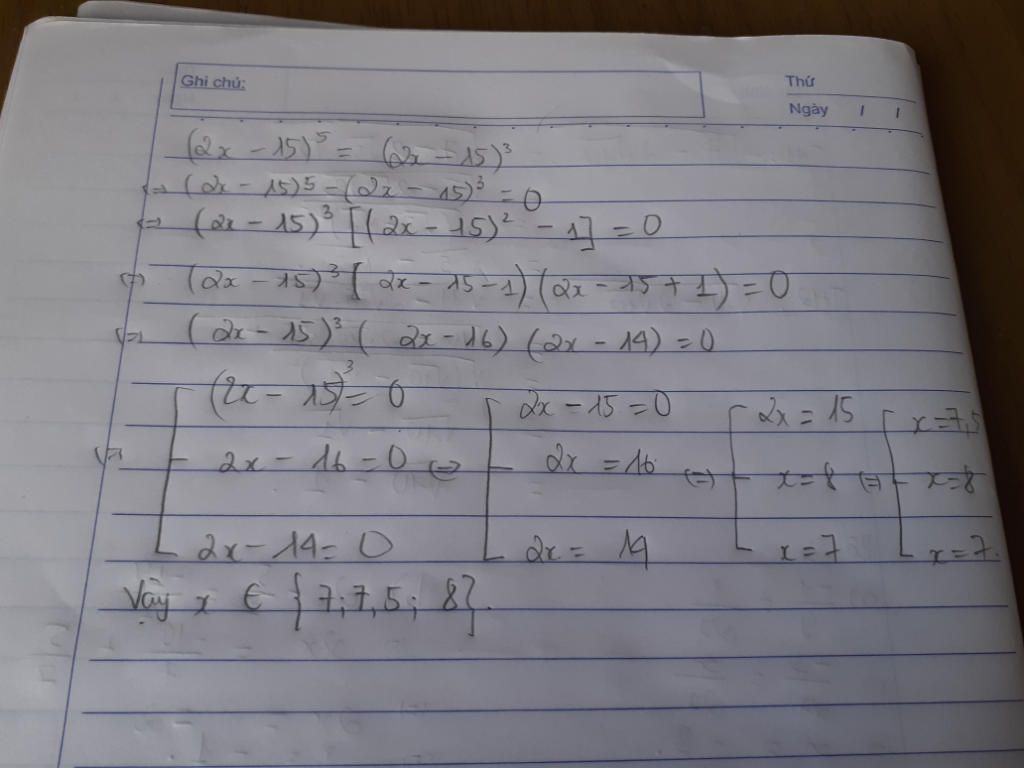 Ghi chú:
Thứ
Ngày / /
(2x - 15)⁵ = (2x - 15)³
⇔ (2x - 15)⁵ - (2x - 15)³ = 0
⇔ (2x - 15)³ [(2x - 15)² - 1] = 0
⇔ (2x - 15)³ [ 2x - 15 - 1) (2x - 15 + 1) = 0
⇔ (2x - 15)³ ( 2x - 16) (2x - 14) = 0
(2x - 15)³ = 0 2x - 15 = 0 2x = 15 x = 7,5
⇔ 2x - 16 = 0 ⇔ 2x = 16 ⇔ x = 8 ⇔ x = 8
2x - 14 = 0 2x = 14 x = 7 x = 7.
Vậy x ∈ {7; 7,5; 8}.